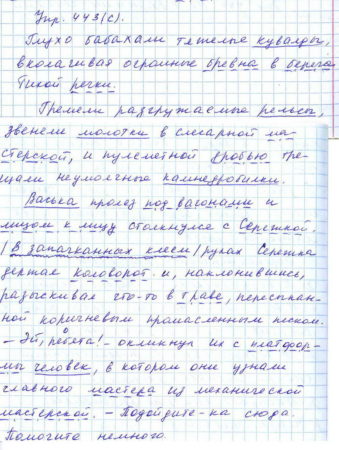 Упр. 443(с).
Глухо бабахали тяжелые кувалды,
вколачивая огромные бревна в берега
Тихой речки.
Гремели разгружаемые рельсы,
звенели молотки в слесарной ма-
стерской, и пулеметной дробью тре-
щали неумолчные камнедробилки.
Васька пролез под вагонами и
лицом к лицу столкнулся с Сережкой.
/В запачканных клеем/ руках Сережка
держал коловорот и, наклонившись,
разыскивал что-то в траве, пересыпан-
ной коричневым промасленным песком.
– Эй, ребята! – окликнул их с платфор-
мы человек, в котором они узнали
главного мастера из механической
мастерской. – Подойдите-ка сюда.
Помогите немного.